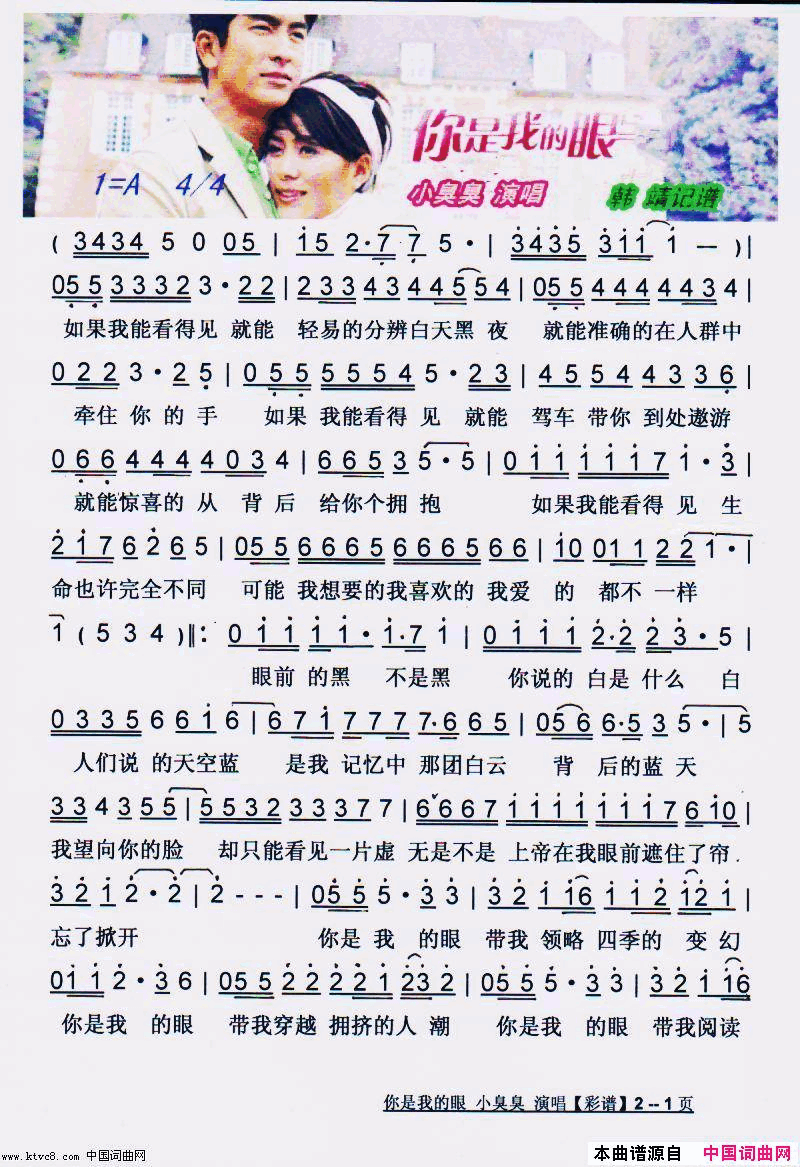 你是我的眼
1=A 4/4
小臭臭 演唱 韩 靖记谱
( 3434 5 0 05 | 15 2·7 7 5· | 3435 311 1 — )|
055 33323·22 | 2233434 4554 | 055 444444434 |
如果我能看得见 就能 轻易的分辨白天黑 夜 就能准确的在人群中
0223·25 | 055 55554 5·23 | 4554 4336 |
牵住 你 的 手 如果 我能看得 见 就能 驾车 带你 到处遨游
066 444034 | 6653 5·5 | 011 1117 1·3 |
就能惊喜的 从 背后 给你个拥抱 如果我能看得 见 生
2176 6265 | 055 6665666566 | 10 011 22 1· |
命也许完全不同 可能 我想要的我喜欢的 我爱 的 都不 一样
1 ( 534 )‖: 0111 11·1·71 | 0111 2·2 23·5 |
眼前 的黑 不是黑 你说的 白是 什么 白
0335661 6 | 671 7777·665 | 056 6·53 5· | 5
人们说 的天空蓝 是我 记忆中 那团白云 背 后的蓝 天
334355 | 5532 33377 | 6667 1111 1117 610 |
我望向你的脸 却只能看见一片虚 无是不是 上帝在我眼前遮住了帘.
321 2·2 | 2 - - - | 055 5·33 | 32 116 112 122 |
忘了掀开 你是 我 的眼 带我 领略 四季的 变幻
011 2·36 | 055 222 2221 232 | 055 5·33 | 321 16
你是我 的眼 带我穿越 拥挤的人 潮 你是我 的眼 带我阅读
你是我的眼 小臭臭 演唱【彩谱】2--1页
www.ktvc8.com 中国词曲网
本曲谱源自 中国词曲网